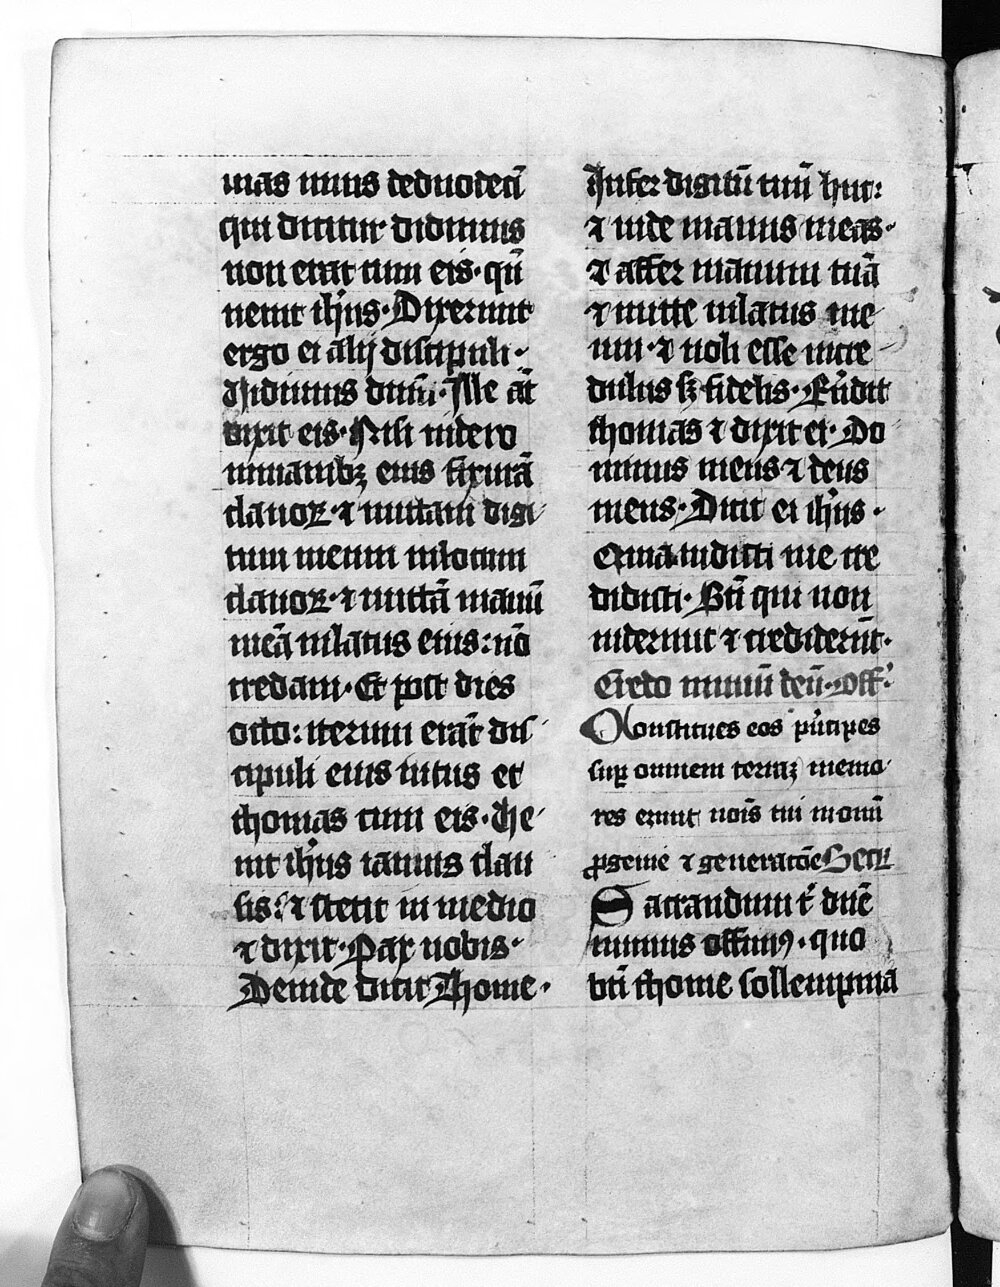 mas unus de duodecī
qui dicitur didimus
non erat cum eis · qn̄
uenit ih̄us · Dixerunt
ergo ei alij discipuli ·
dūm · Ille aūt
dixit eis · Nisi uidero
in manibꝫ eius fixurā
clauoꝝ · ⁊ mittam digi
tum meum in locum
clauoꝝ · ⁊ mittā manū
meā in latus eius : nō
credam · Et post dies
octo : iterum erāt dis
cipuli eius intus et
thomas cum eis · Ue
nit ih̄us ianuis clau
sis : ⁊ stetit in medio
⁊ dixit · Pax uobis ·
Deinde dicit Thome ·
Infer digitū tuū huc :
⁊ uide manus meas ·
⁊ affer manum tuā
⁊ mitte in latus me
um · ⁊ noli esse incre
dulus sꝫ fidelis · Rn̄dit
thomas ⁊ dixit ei · Do
minus meus ⁊ deus
meus · Dicit ei ih̄us ·
Quia uidisti me cre
didisti · Bti̅ qui non
uiderunt ⁊ crediderūt ·
Credo in unū deū · Off̄
Constitues eos pͥncipes
suꝑ omnem terraꝫ memo
res erunt noīs tui in omī
ꝓgenie ⁊ generatōe Secr̄
Sacrandum t̄ dn̄e
munus offimꝰ · quo
bt̄i thome sollempnia